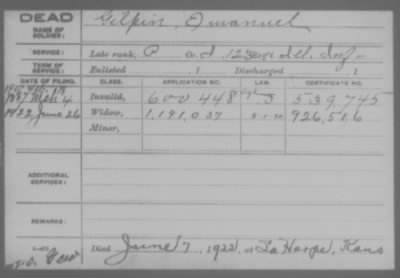 DEAD
NAME OF SOLDIER: Gilpin, Emanuel
SERVICE: Late rank, P Co. I, 123 Regt Ill. Inf.
TERM OF SERVICE: Enlisted , 1 Discharged , 1
DATE OF FILING. CLASS. APPLICATION NO. LAW. CERTIFICATE NO.
1887 Mar 4 Invalid, 600 448 539,745
1922 June 26 Widow, 1,191,037 926,516
Minor,
ADDITIONAL SERVICES:
REMARKS:
Died June 7, 1922, at La Harpe, Kans